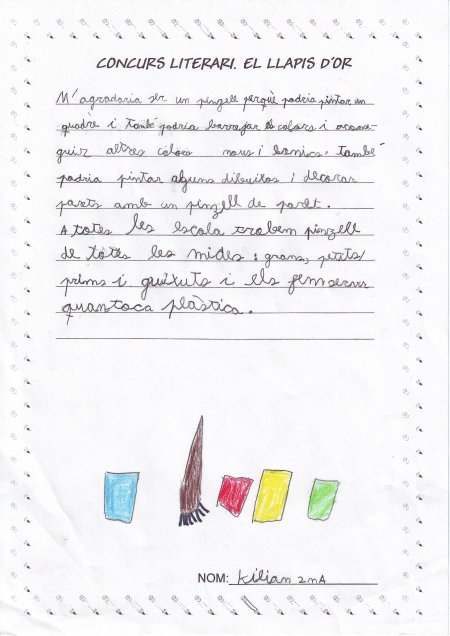 CONCURS LITERARI. EL LLAPIS D'OR
M'agradaria ser un pinzell perquè podria pintar un
quadre i també podria barrejar els colors i acone-
guir altres colors nous i bonics. també
podria pintar alguns dibuixos i decorar
parets amb un pinzell de paret.
A totes les escola trobem pinzell
de totes les mides: grans, petits/
prims i guixuts i els fem servir
quan toca plàstica.
NOM: Kilian 2n A